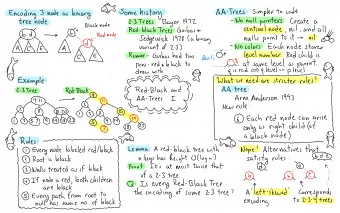 Encoding 3-node as binary
tree node
Black node
Red node
Example
2-3 Tree
Red-Black
Rules:
① Every node labeled red/black
② Root is black
③ Nulls treated as if black
④ If node is red, both children
are black
⑤ Every path from root to
null has same no. of black
Some history:
2-3 Trees: Bayer 1972
Red-black Trees: Guibas &
Sedgewick 1978 (a binary
variant of 2-3)
Rumor: Guibas had two
pens - red & black to
draw with
Red-Black and
AA-Trees I
Lemma: A red-black tree with
n keys has height O(log n)
Proof: It's at most twice that
of a 2-3 tree.
Q: Is every Red-Black Tree
the encoding of some 2-3 tree?
AA-Trees: Simpler to code
- No null pointers: Create a
sentinel node, nil, and all
nulls point to it → nil
- No colors: Each node stores
level number. Red child is
at same level as parent.
q is red ⇔ q.level == p.level
What we need are stricter rules!
AA-tree:
Arne Anderson 1993
New rule:
⑥ Each red node can arise
only as right child (of
a black node)
Nope! Alternatives that
satisfy rules:
b d c
A "left-skewed"
encoding
Corresponds
to 2-3-4 trees